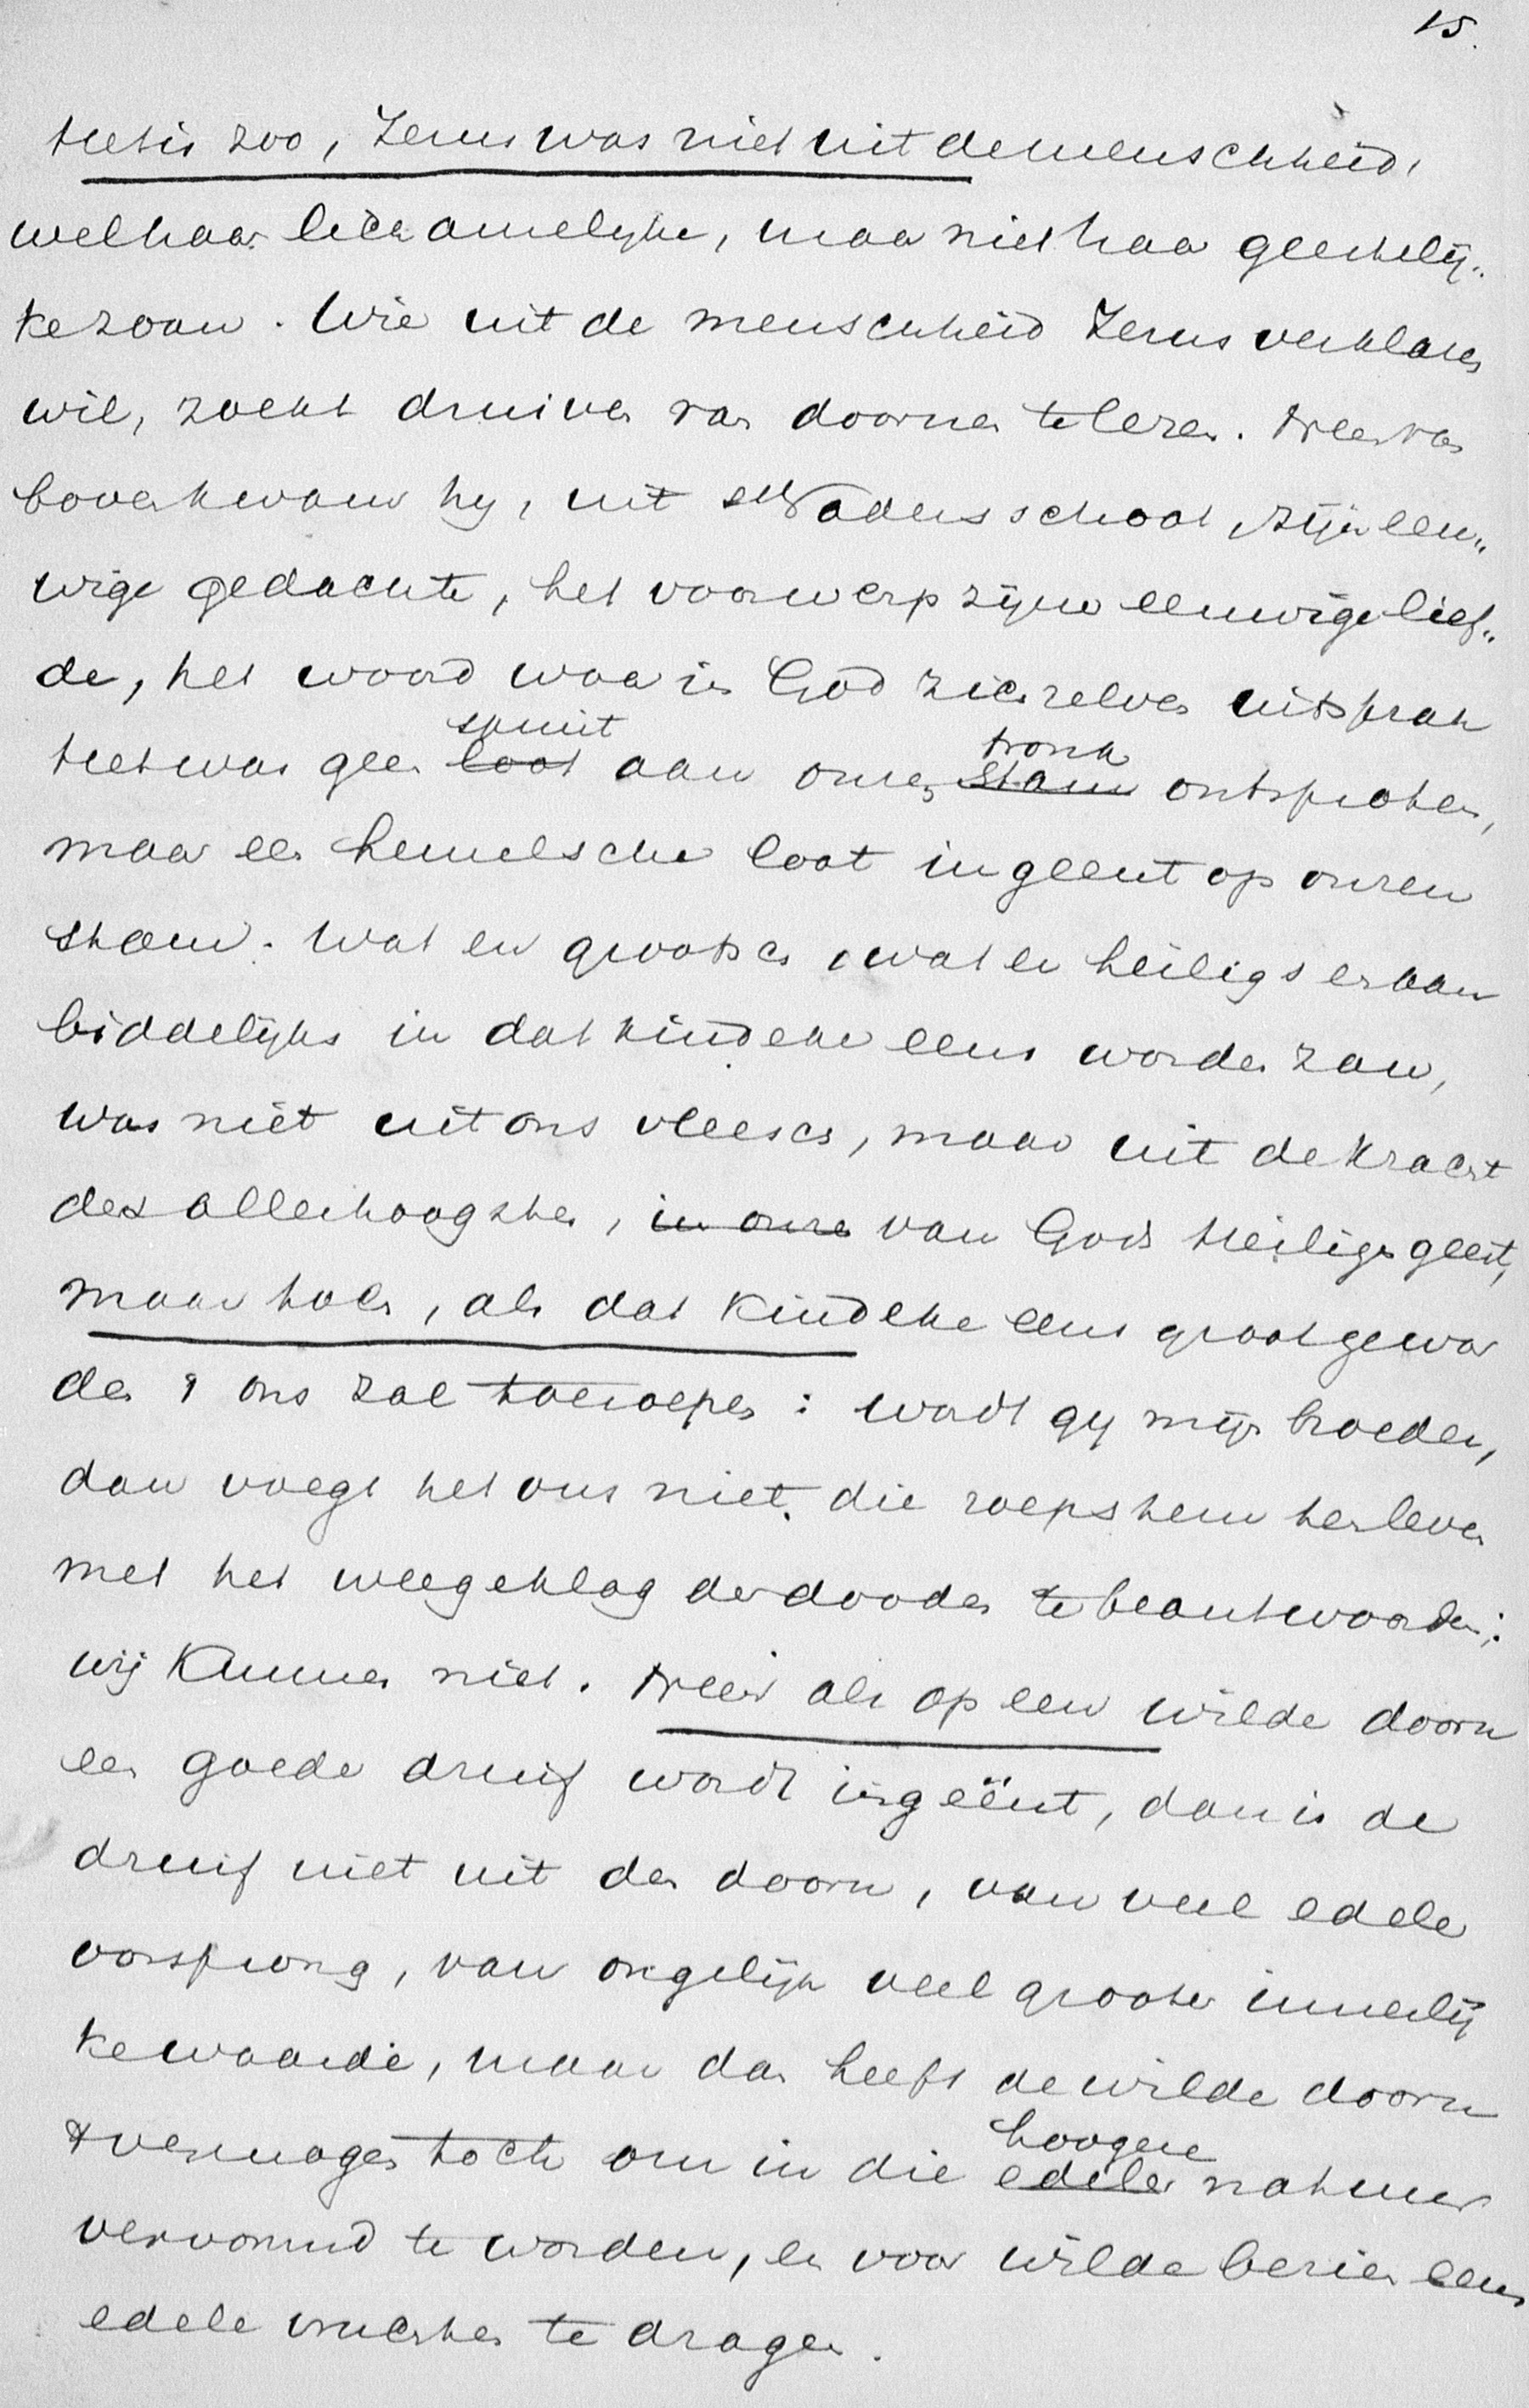 15.
Het is zoo, Jezus was niet uit de menschheid,
wel haar lichamelijke, maar niet haar geestelij„
ke zoon. Wie uit de menschheid Jezus verklaren
wil, zoekt druiven van doornen te lezen. Neen van
boven kwam hij, uit des Vaders schoot, zijn eeu„
wige gedachte, het voorwerp zijner eeuwige lief„
de, het woord waarin God zichzelven uitsprak
spruit tronk
Het was geen loot aan onzen stam ontsproten,
maar een hemelsche loot ingeent op onzen
stam. Wat er grootsch, wat er heiligs er aan
biddelijks in dat kindeke eens worden zou,
was niet uit ons vleesch, maar uit de kracht
des allerhoogsten, in onze van Gods Heiligen geest,
maar toch, als dat kindeke eens groot gewor
den & ons zal toeroepen: wordt gij mijn broeder,
dan voegt het ons niet, die roepstem ten leven
met het weegeklag der dooden te beantwoorden:
wij kunnen niet. Neen als op een wilde doorn
een goede druif wordt ingeënt, dan is de
druif niet uit den doorn, van veel edeler
oorsprong, van ongelijk veel grooter innerlij
ke waarde, maar dan heeft de wilde doorn
't vermogen toch om in die
hoogere
edeler natuur
vervormd te worden, en voor wilde beziën eens
edele vruchten te dragen.